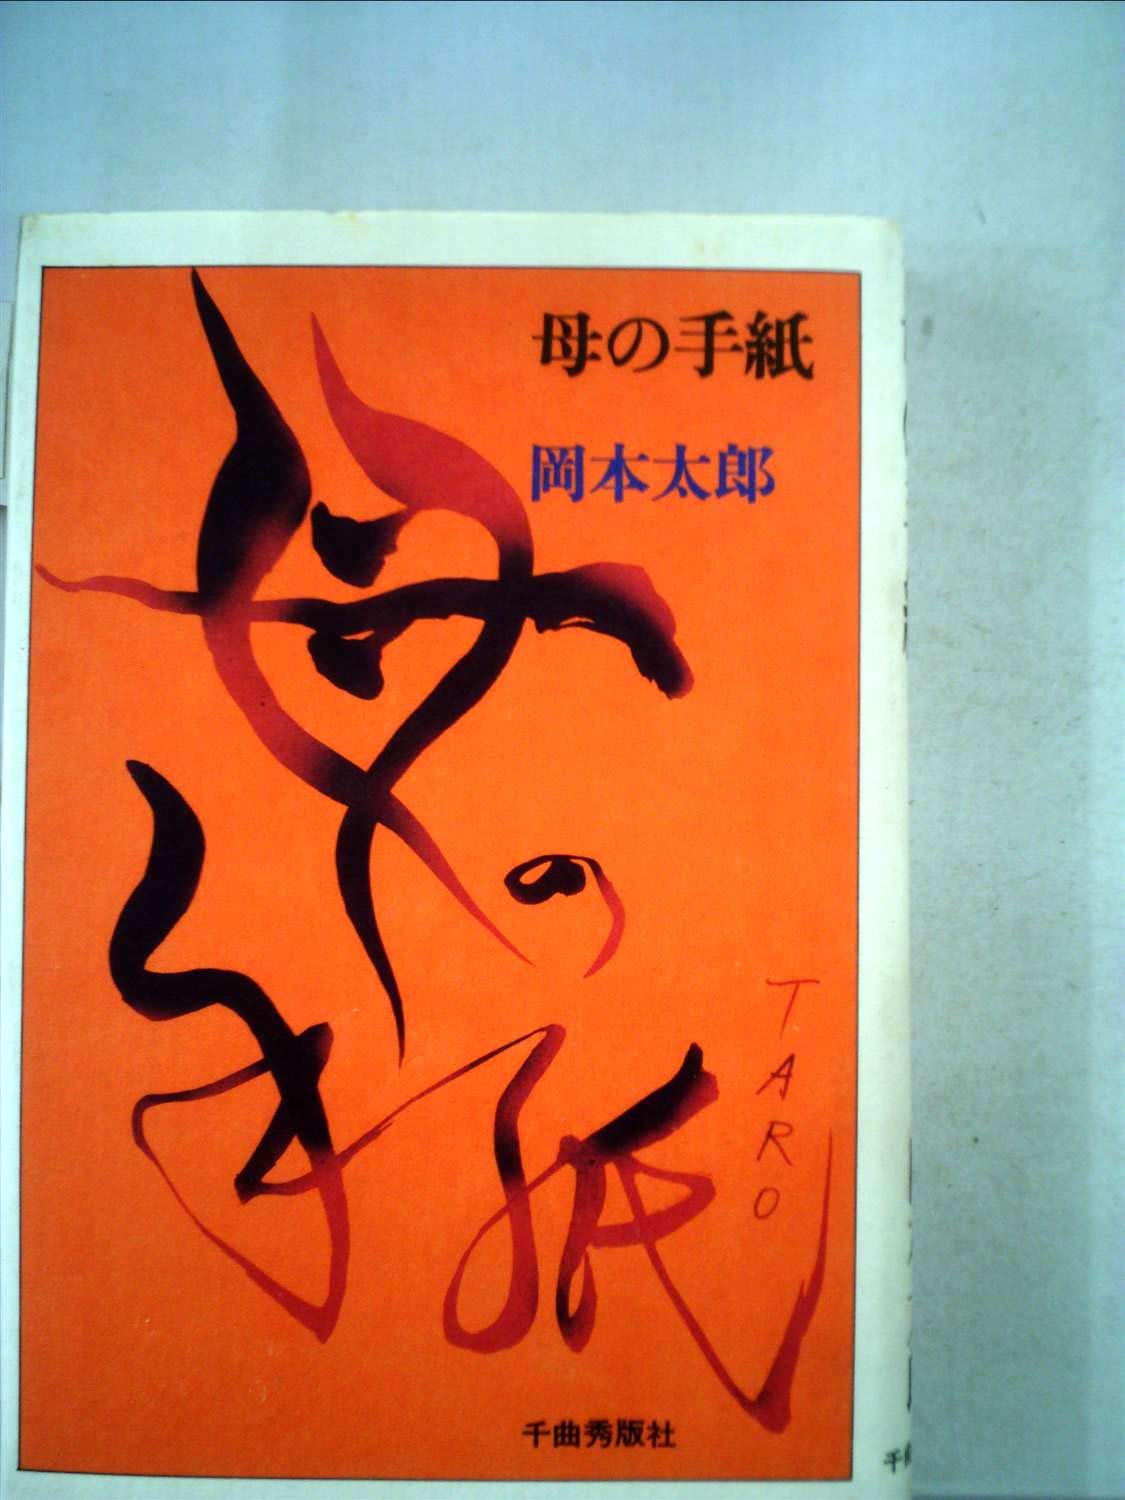 母の手紙
岡本太郎
母の手紙
TARO
千曲秀版社
千